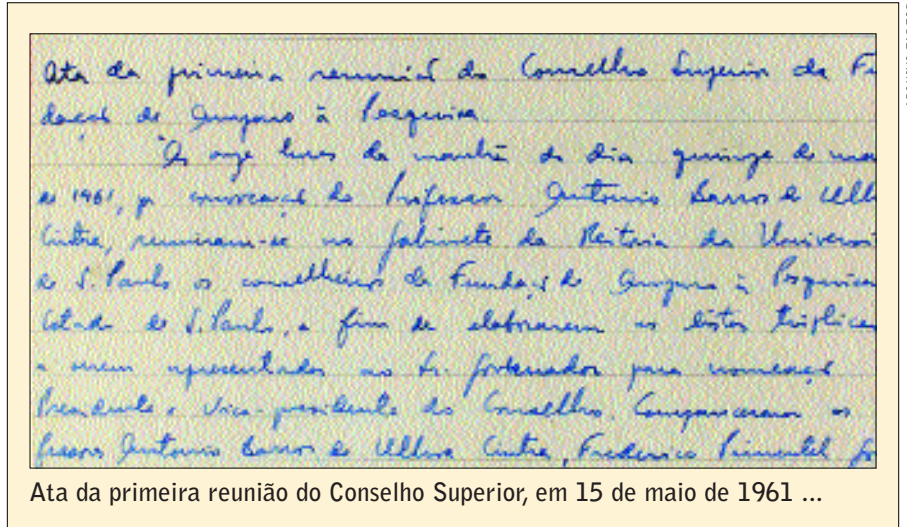 Ata da primeira reunião do Conselho Superior da Fu
dação de Amparo à Pesquisa
Às onze horas da manhã do dia quinze de ma
de 1961, por convocação do Professor Antonio Barros de Ulh
Cintra, reuniram-se no gabinete da Reitoria da Universi
de S. Paulo os conselheiros da Fundação de Amparo à Pesquisa
Estado de S. Paulo, a fim de elaborarem as listas tríplices
a serem apresentadas ao Sr. Governador para nomeação
Presidente e Vice-presidente do Conselho. Compareceram os
fessores Antonio Barros de Ulhoa Cintra, Frederico Pimentel Go
Ata da primeira reunião do Conselho Superior, em 15 de maio de 1961 ...